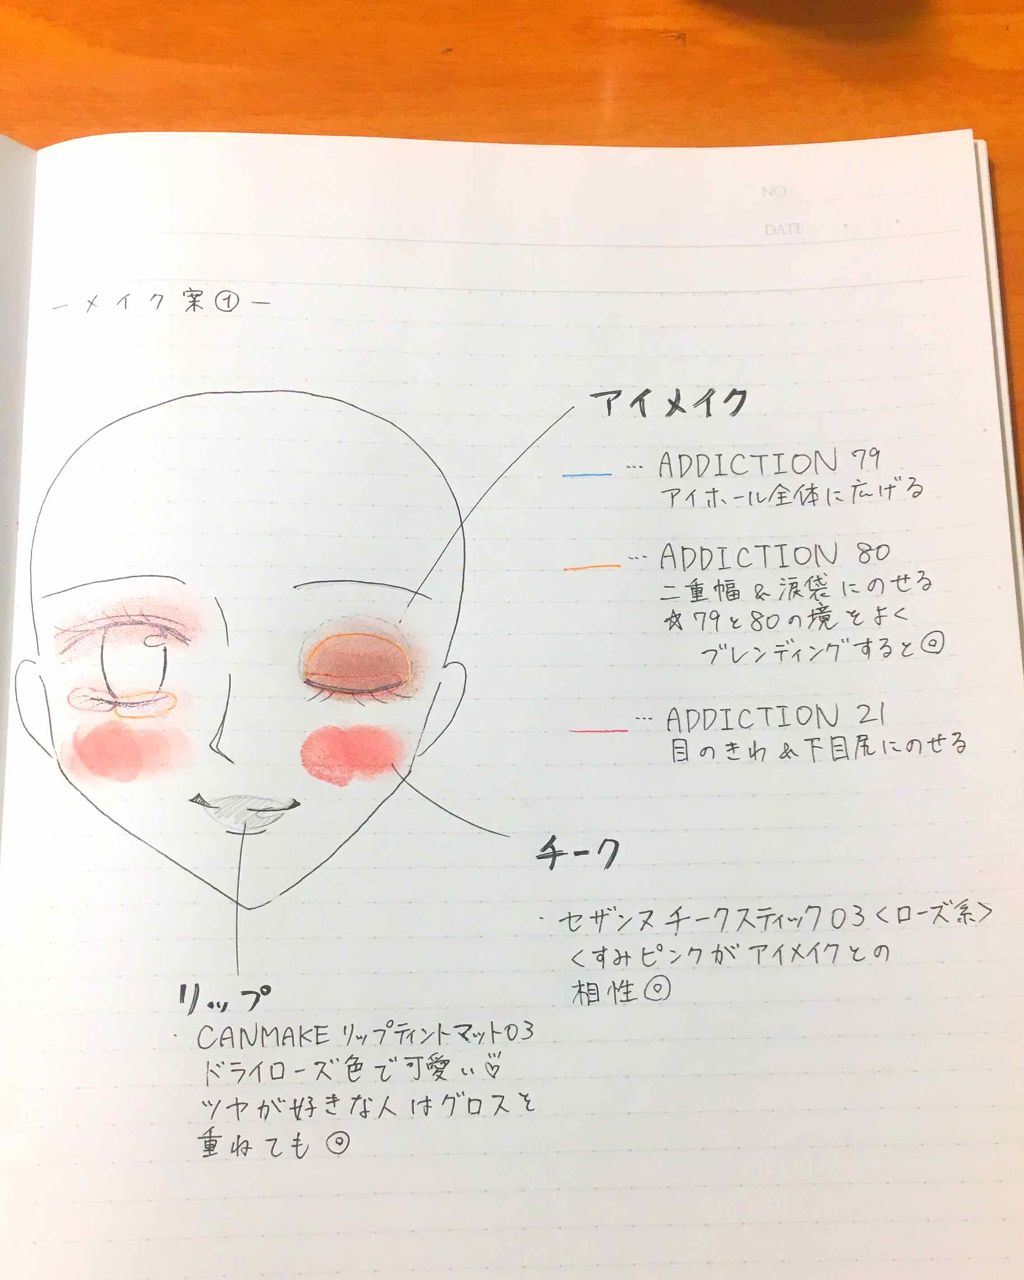 NO.
DATE
－メイク案①－
アイメイク
… ADDICTION 79
アイホール全体に広げる
… ADDICTION 80
二重幅&涙袋にのせる
☆79と80の境をよく
ブレンディングすると◎
… ADDICTION 21
目のきわ&下目尻にのせる
チーク
・セザンヌチークスティック03<ローズ系>
くすみピンクがアイメイクとの
相性◎
リップ
・CANMAKEリップティントマット03
ドライローズ色で可愛い♡
ツヤが好きな人はグロスを
重ねても◎